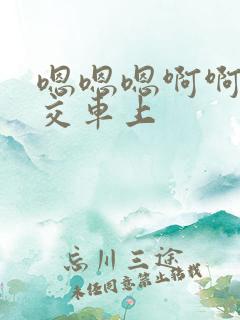 嗯嗯嗯啊啊
交车上
忘川三途
未经同意禁止转载